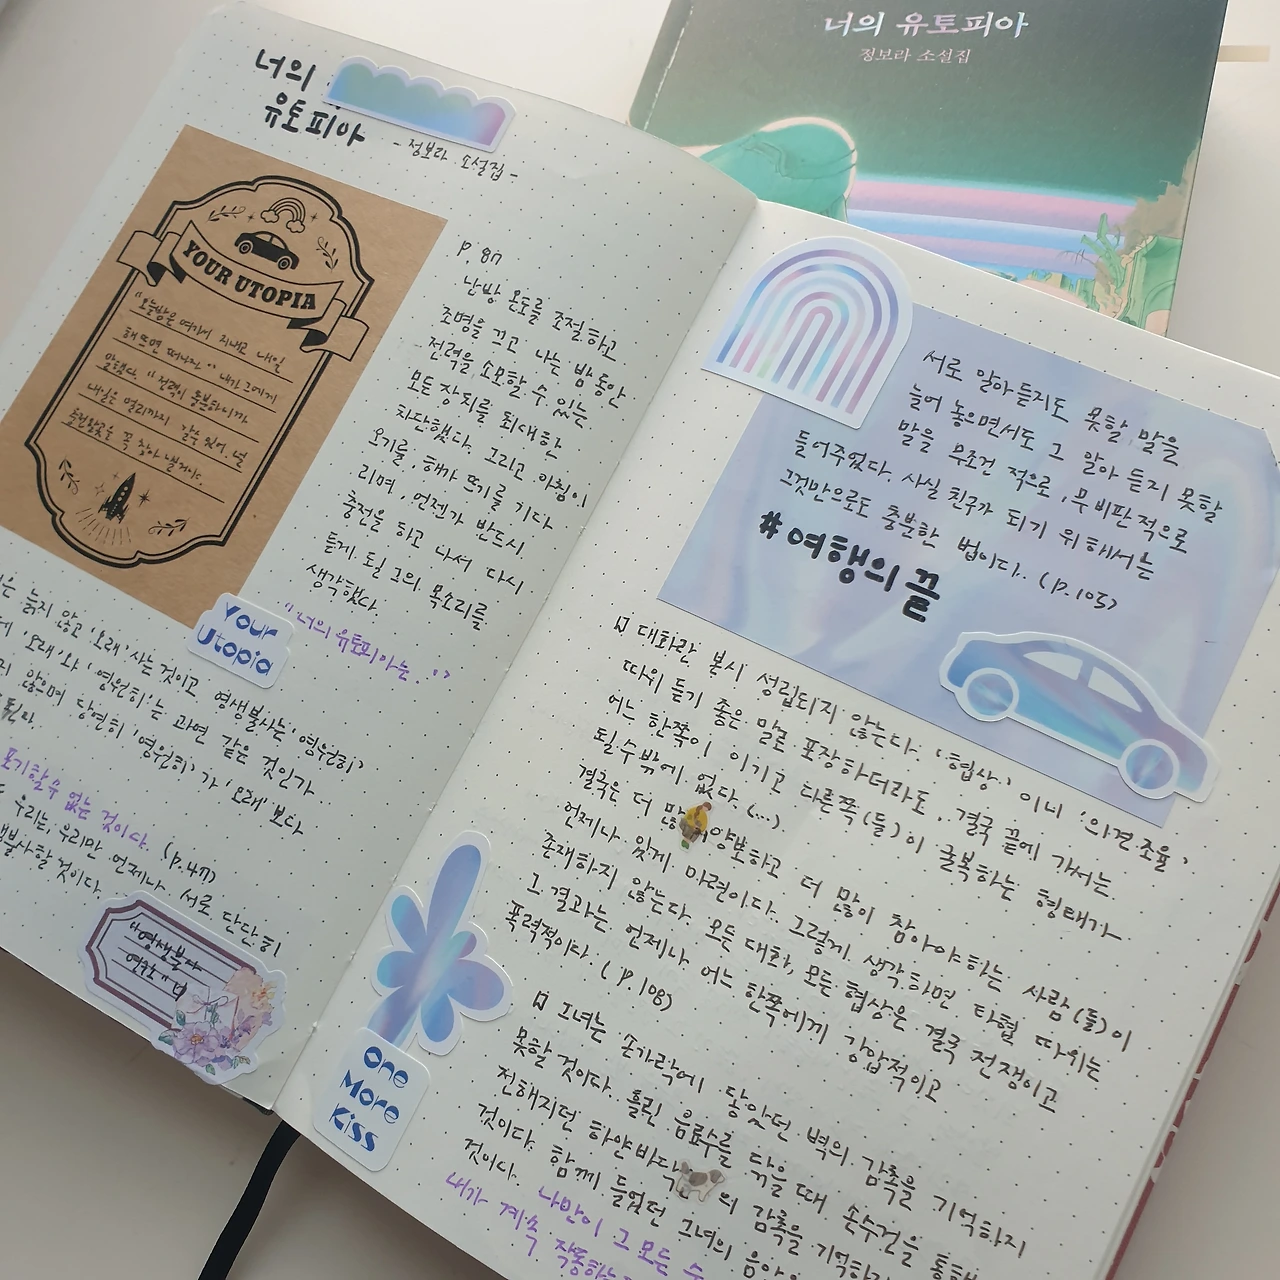 너의 유토피아
정보라 소설집
너의
유토피아
- 정보라 소설집 -
YOUR UTOPIA
"오늘밤은 여기서 지내고 내일
해 뜨면 떠나자." 내가 그에게
말했다. "전력이 충분하니까
내일은 멀리까지 갈 수 있어. 널
충전할 곳을 꼭 찾아낼 거야.
P. 87
난방 온도를 조절하고
조명을 끄고 나는 밤 동안
전력을 소모할 수 있는
모든 장치를 최대한
차단했다. 그리고 아침이
오기를, 해가 뜨기를 기다
리며, 언젠가 반드시
충전을 하고 나서 다시
듣게 될 그의 목소리를
생각했다.
"너의 유토피아는."
Your
Utopia
은 늙지 않고 '오래' 사는 것이고 영생불사는 '영원히'
'오래'와 '영원히'는 과연 같은 것인가
않으며 당연히 '영원히'가 '오래'보다
포기할 수 없는 것이다. (p.47)
우리는, 우리만 언제나 서로 단단히
불사할 것이다.
"영생불사
연구소" 中
서로 알아듣지도 못할 말을
늘어 놓으면서도 그 알아 듣지 못할
말을 무조건 적으로, 무비판적으로
들어주었다. 사실 친구가 되기 위해서는
그것만으로도 충분한 법이다. (p.105)
#여행의 끝
대화란 본시 성립되지 않는다. '협상' 이니 '의견조율'
따위 듣기 좋은 말로 포장하더라도, 결국 끝에 가서는
어느 한쪽이 이기고 다른쪽(들)이 굴복하는 형태가
될 수밖에 없다. (...)
결국은 더 많이 양보하고 더 많이 참아야 하는 사람(들)이
언제나 있게 마련이다. 그렇게 생각하면 타협 따위는
존재하지 않는다. 모든 대화, 모든 협상은 결국 전쟁이고
그 결과는 언제나 어느 한쪽에게 강압적이고
폭력적이다. (p.108)
그녀는 손가락에 닿았던 벽의 감촉을 기억하지
못할 것이다. 흘린 음료수를 닦을 때 손수건을 통해
전해지던 하얀바닥의 감촉을 기억하
것이다. 함께 들었던 그녀의 음아
것이다. 나만이 그 모든 수
내가 계속 작동하는
One
More
Kiss